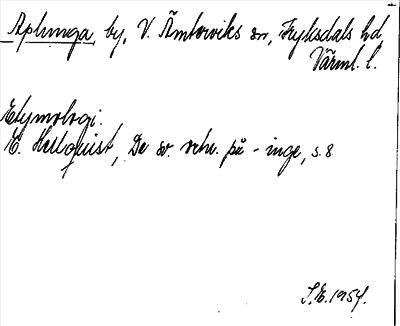 Aplunga by, V. Ämterviks sn, Fryksdals hd,
Värml. l.
Etymologi:
E. Hellquist, De sv. ortn. på -inge, s. 8
S.E. 1954.